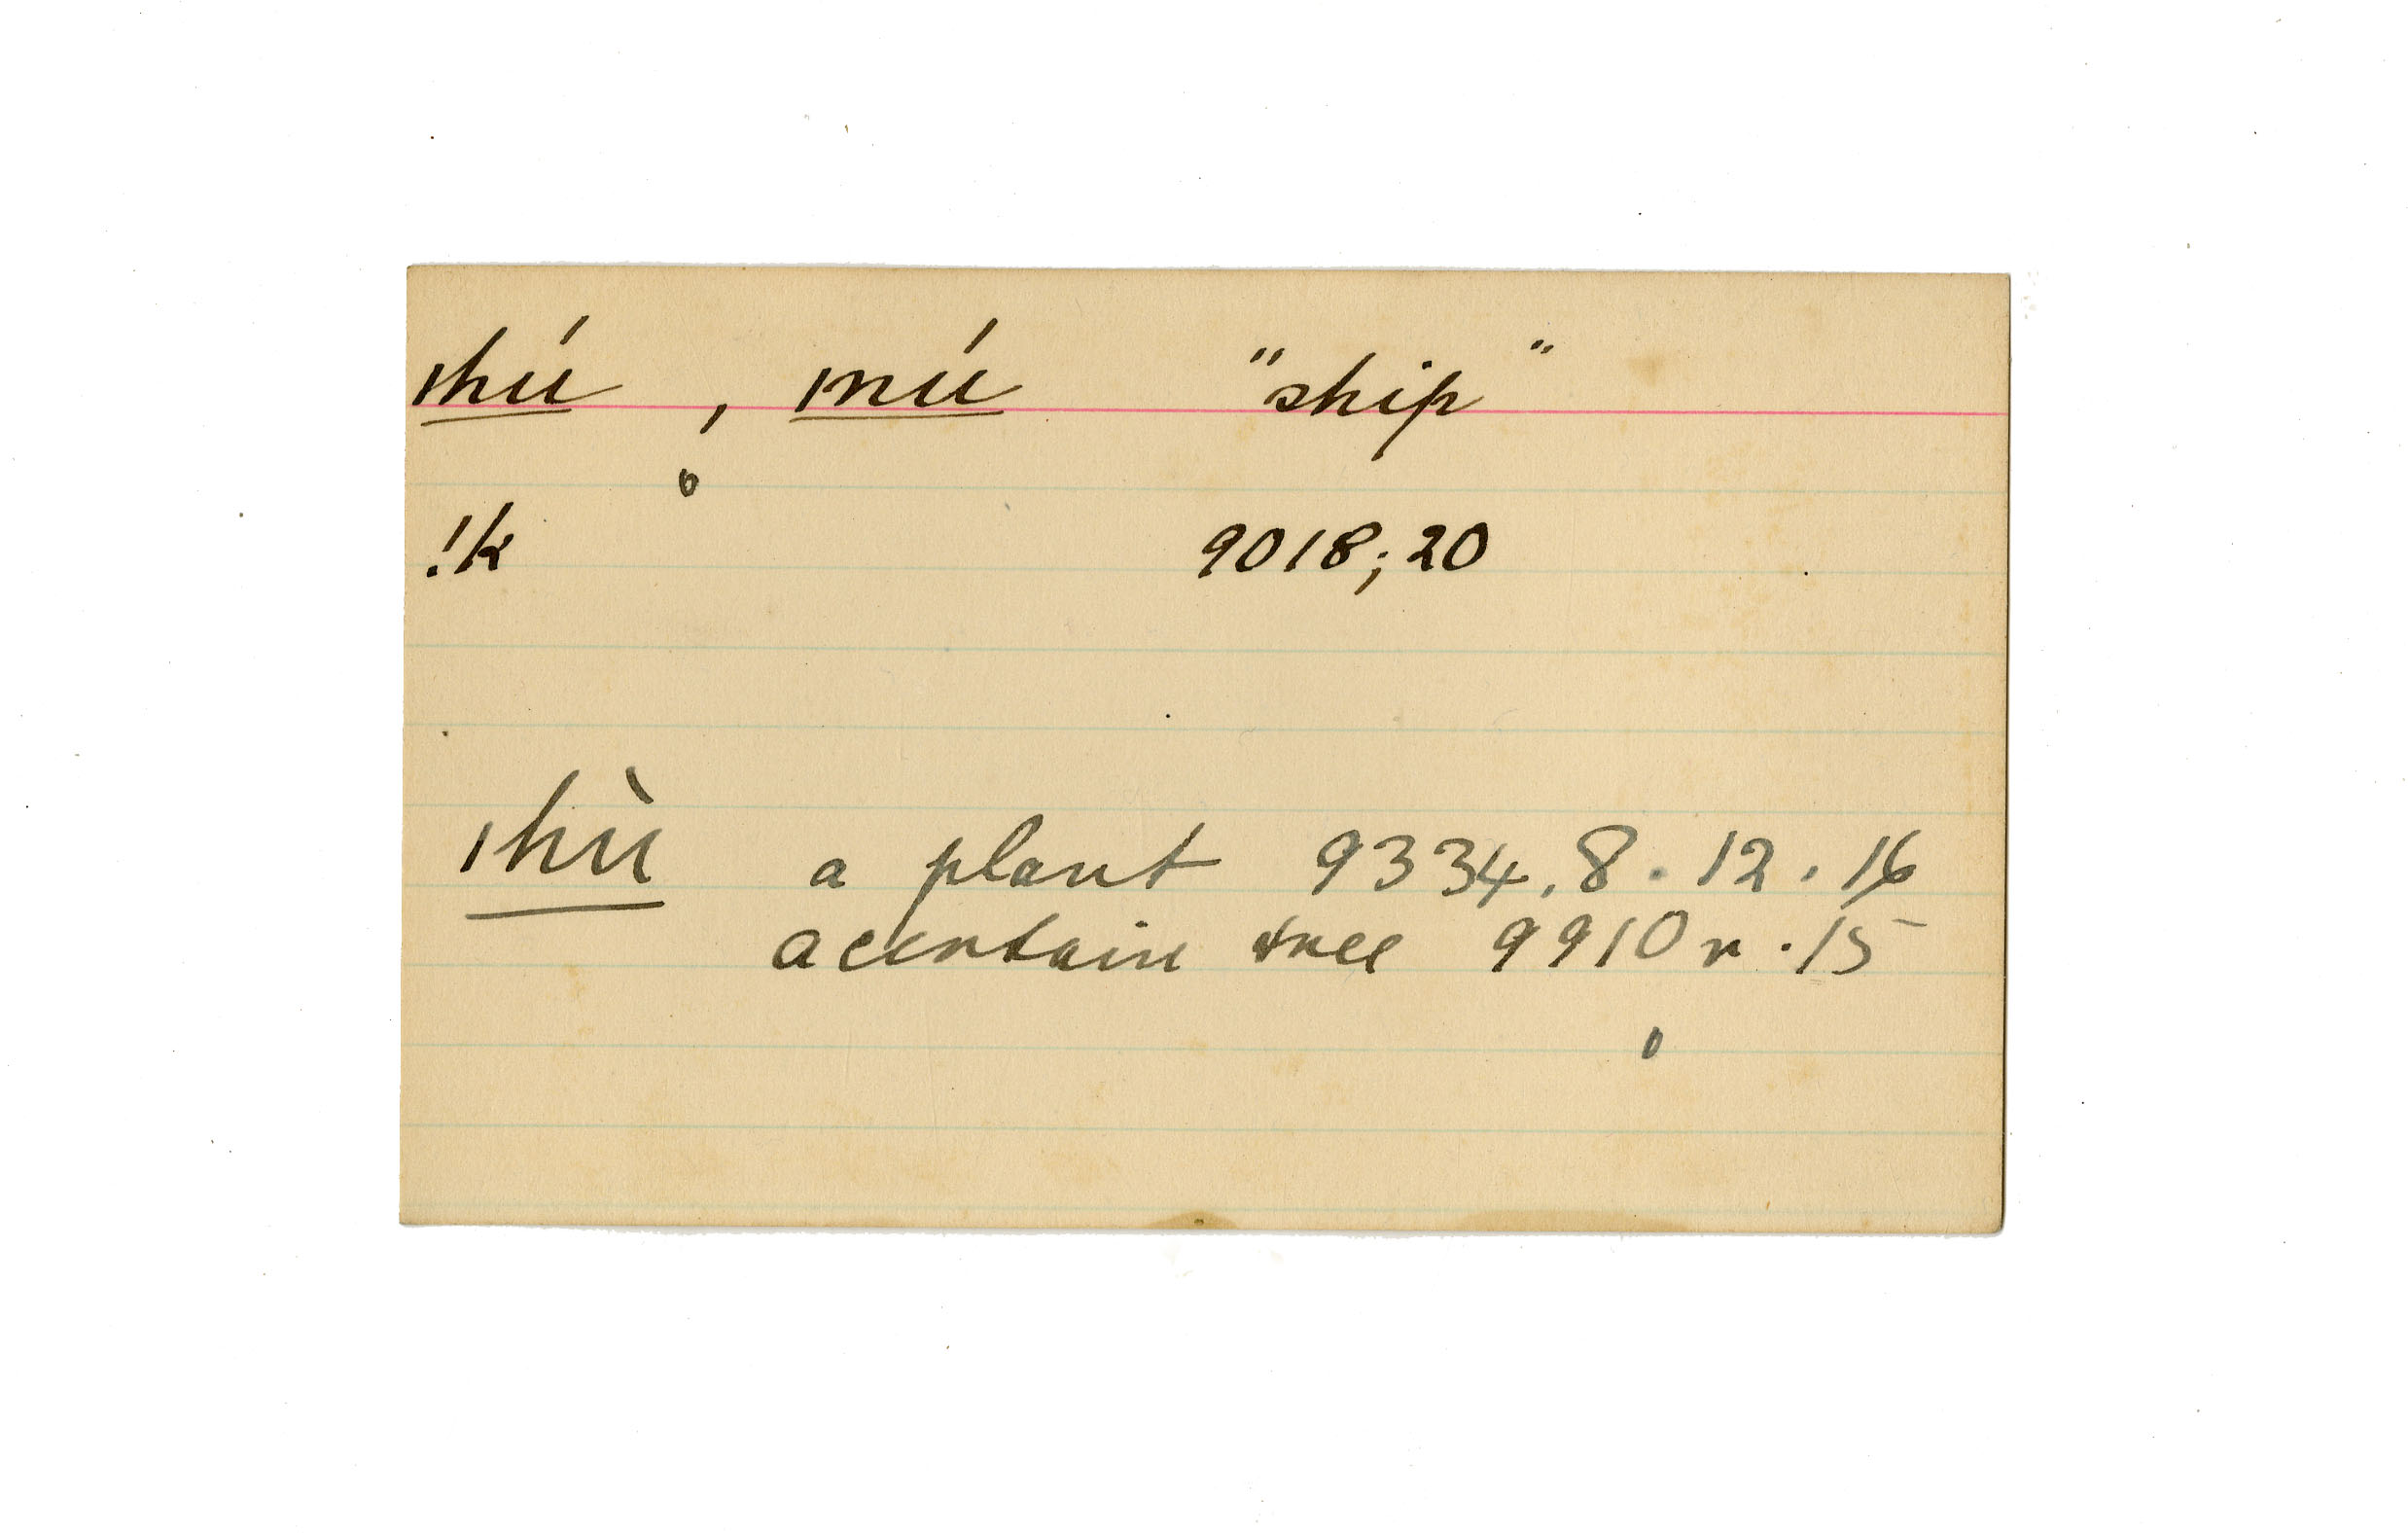 ıhú , ınú "ship"
!k 9018; 20
ıhù a plant 9334. 8. 12. 16
a certain tree 9910 r. 15